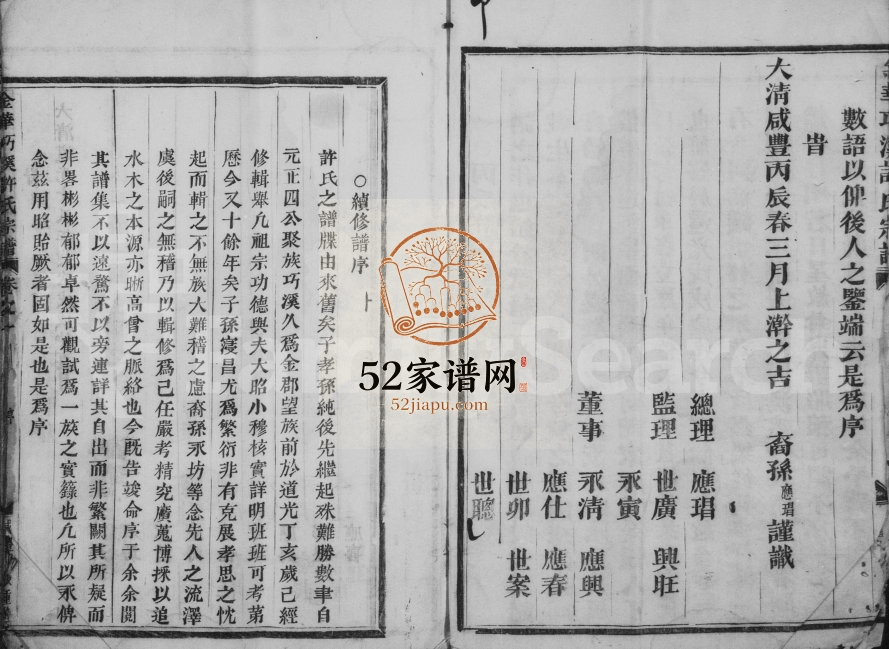 數語以俾後人之鑒端云是爲序
旹
大清咸豐丙辰春三月上澣之吉 裔孫應瑁謹識
總理 應瑁
監理 世廣 興旺
永寅
董事 永清 應興
應仕 應春
世卯 世案
世聰
續修譜序
許氏之譜牒由來舊矣子孝孫純後先繼起殊難勝數聿自
元正四公聚族巧溪久爲金郡望族前於道光丁亥歲已經
修輯舉凡祖宗功德與夫大昭小穆核實詳明班班可考第
歷今又十餘年矣子孫寖昌尤爲繁衍非有克展孝思之忱
起而輯之不無族大難稽之慮裔孫永坊等念先人之流澤
虞後嗣之無稽乃以輯修爲己任嚴考精究廣蒐博採以追
水木之本源亦晰高曾之脈絡也今既告竣命序于余余閱
其譜集不以遠騖不以旁連詳其自出而非繁關其所疑而
非畧彬彬郁郁卓然可觀試爲一族之寶籙也凡所以永俾
念茲用昭貽厥者固如是也是爲序
金華巧溪許氏宗譜 卷之一 序
52家谱网
52jiapu.com